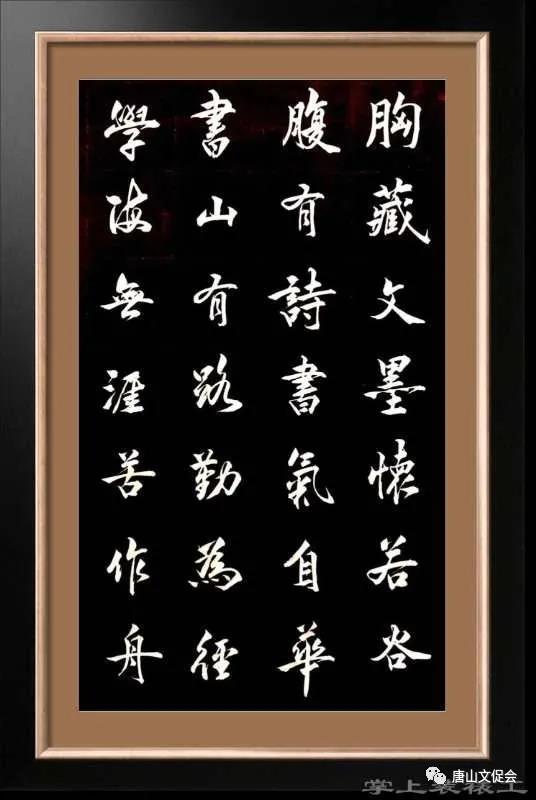 胸藏文墨懷若谷
腹有詩書氣自華
書山有路勤為徑
學海無涯苦作舟
唐山文促会
掌上装裱工